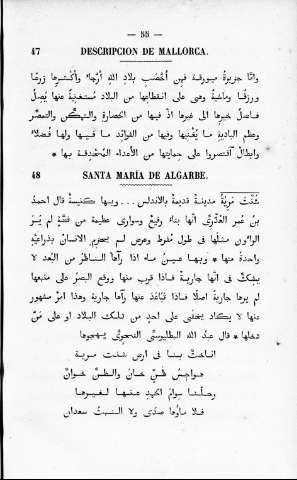 — 55 —
47 DESCRIPCION DE MALLORCA.
وامّا جزيرة ميورقة فمن أخصب بلاد الله أرجاء وأكثرها زرعا
ورزقا وماشية وهى على انقطاعها من البلاد مستغنية عنها يصل
فاضل خيرها الى غيرها اذ فيها من الحضارة والتمكّن والتمصّر
وعظم البادية ما يغنيها وفيها من الفوائد ما فيها ولها فضلاء
وابطال اقتصروا على حمايتها من الأعداء المحدقة بها *
48 SANTA MARÍA DE ALGARBE.
شنت مرية مدينة قديمة بالاندلس ... وبها كنيسة قال احمد
بن عمر العذرى انّها بناء رفيع وسوارى عظيمة من فضّة لم يَرَ
الراءون مثلها فى طول مفرط وعرض لم يحتزم الانسان بذراعيه
واحدة منها * وبها عين ماء اذا رآها الناظر من البعد لا
يشكّ فى انّها جارية فاذا قرب منها ووقع البصر على منبعها
لم يرها جارية اصلا فاذا تباعد عنها رآها جارية وهذا امر مشهور
عنها لا يكاد يخفى على احد من تلك البلاد او على مَنْ
دخلها * قال عبد الله البطليوسى النحوى يهجوها
اناخت بنا فى ارض شنت مرية
هواجس ظنّ خان والظنّ خوان
رحلنا سوام الحمد عنها لغيرها
فلا ماؤها صدى ولا النبت سعدان